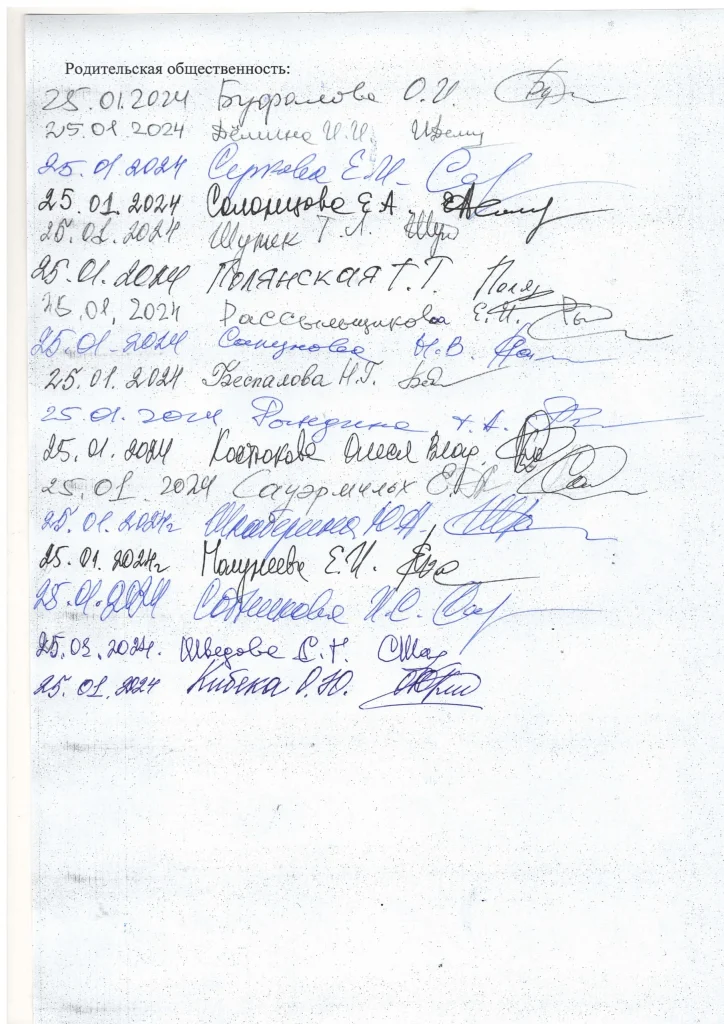 Родительская общественность:
25.01.2024 Буфалова О.И.
25.01.2024 Дёмина И.И.
25.01.2024 Серкова Е.И.
25.01.2024 Солонцова Е А
25.01.2024 Шупек Т.Л.
25.01.2024 Полянская Т.Т.
25.01.2024 Рассыльщикова Е.Н.
25.01.2024 Сапунова М.В
25.01.2024 Беспалова Н.Г.
25.01.2024
25.01.2024 Костюкова Олеся Влад.
25.01.2024 Сауэрмильх
25.01.2024г Ю.А.
25.01.2024г Е.И.
25.01.2024 Сотникова И.С.
2024г. Шведова С.Н.
25.01.2024 О.Ю.